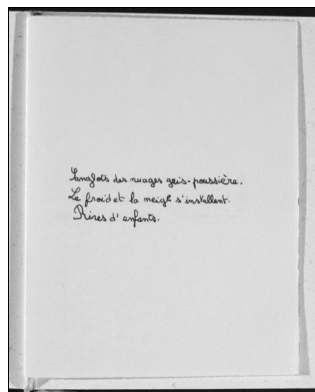 Sanglots des nuages gris-poussière.
Le froid et la neige s'installent.
Rires d'enfants.